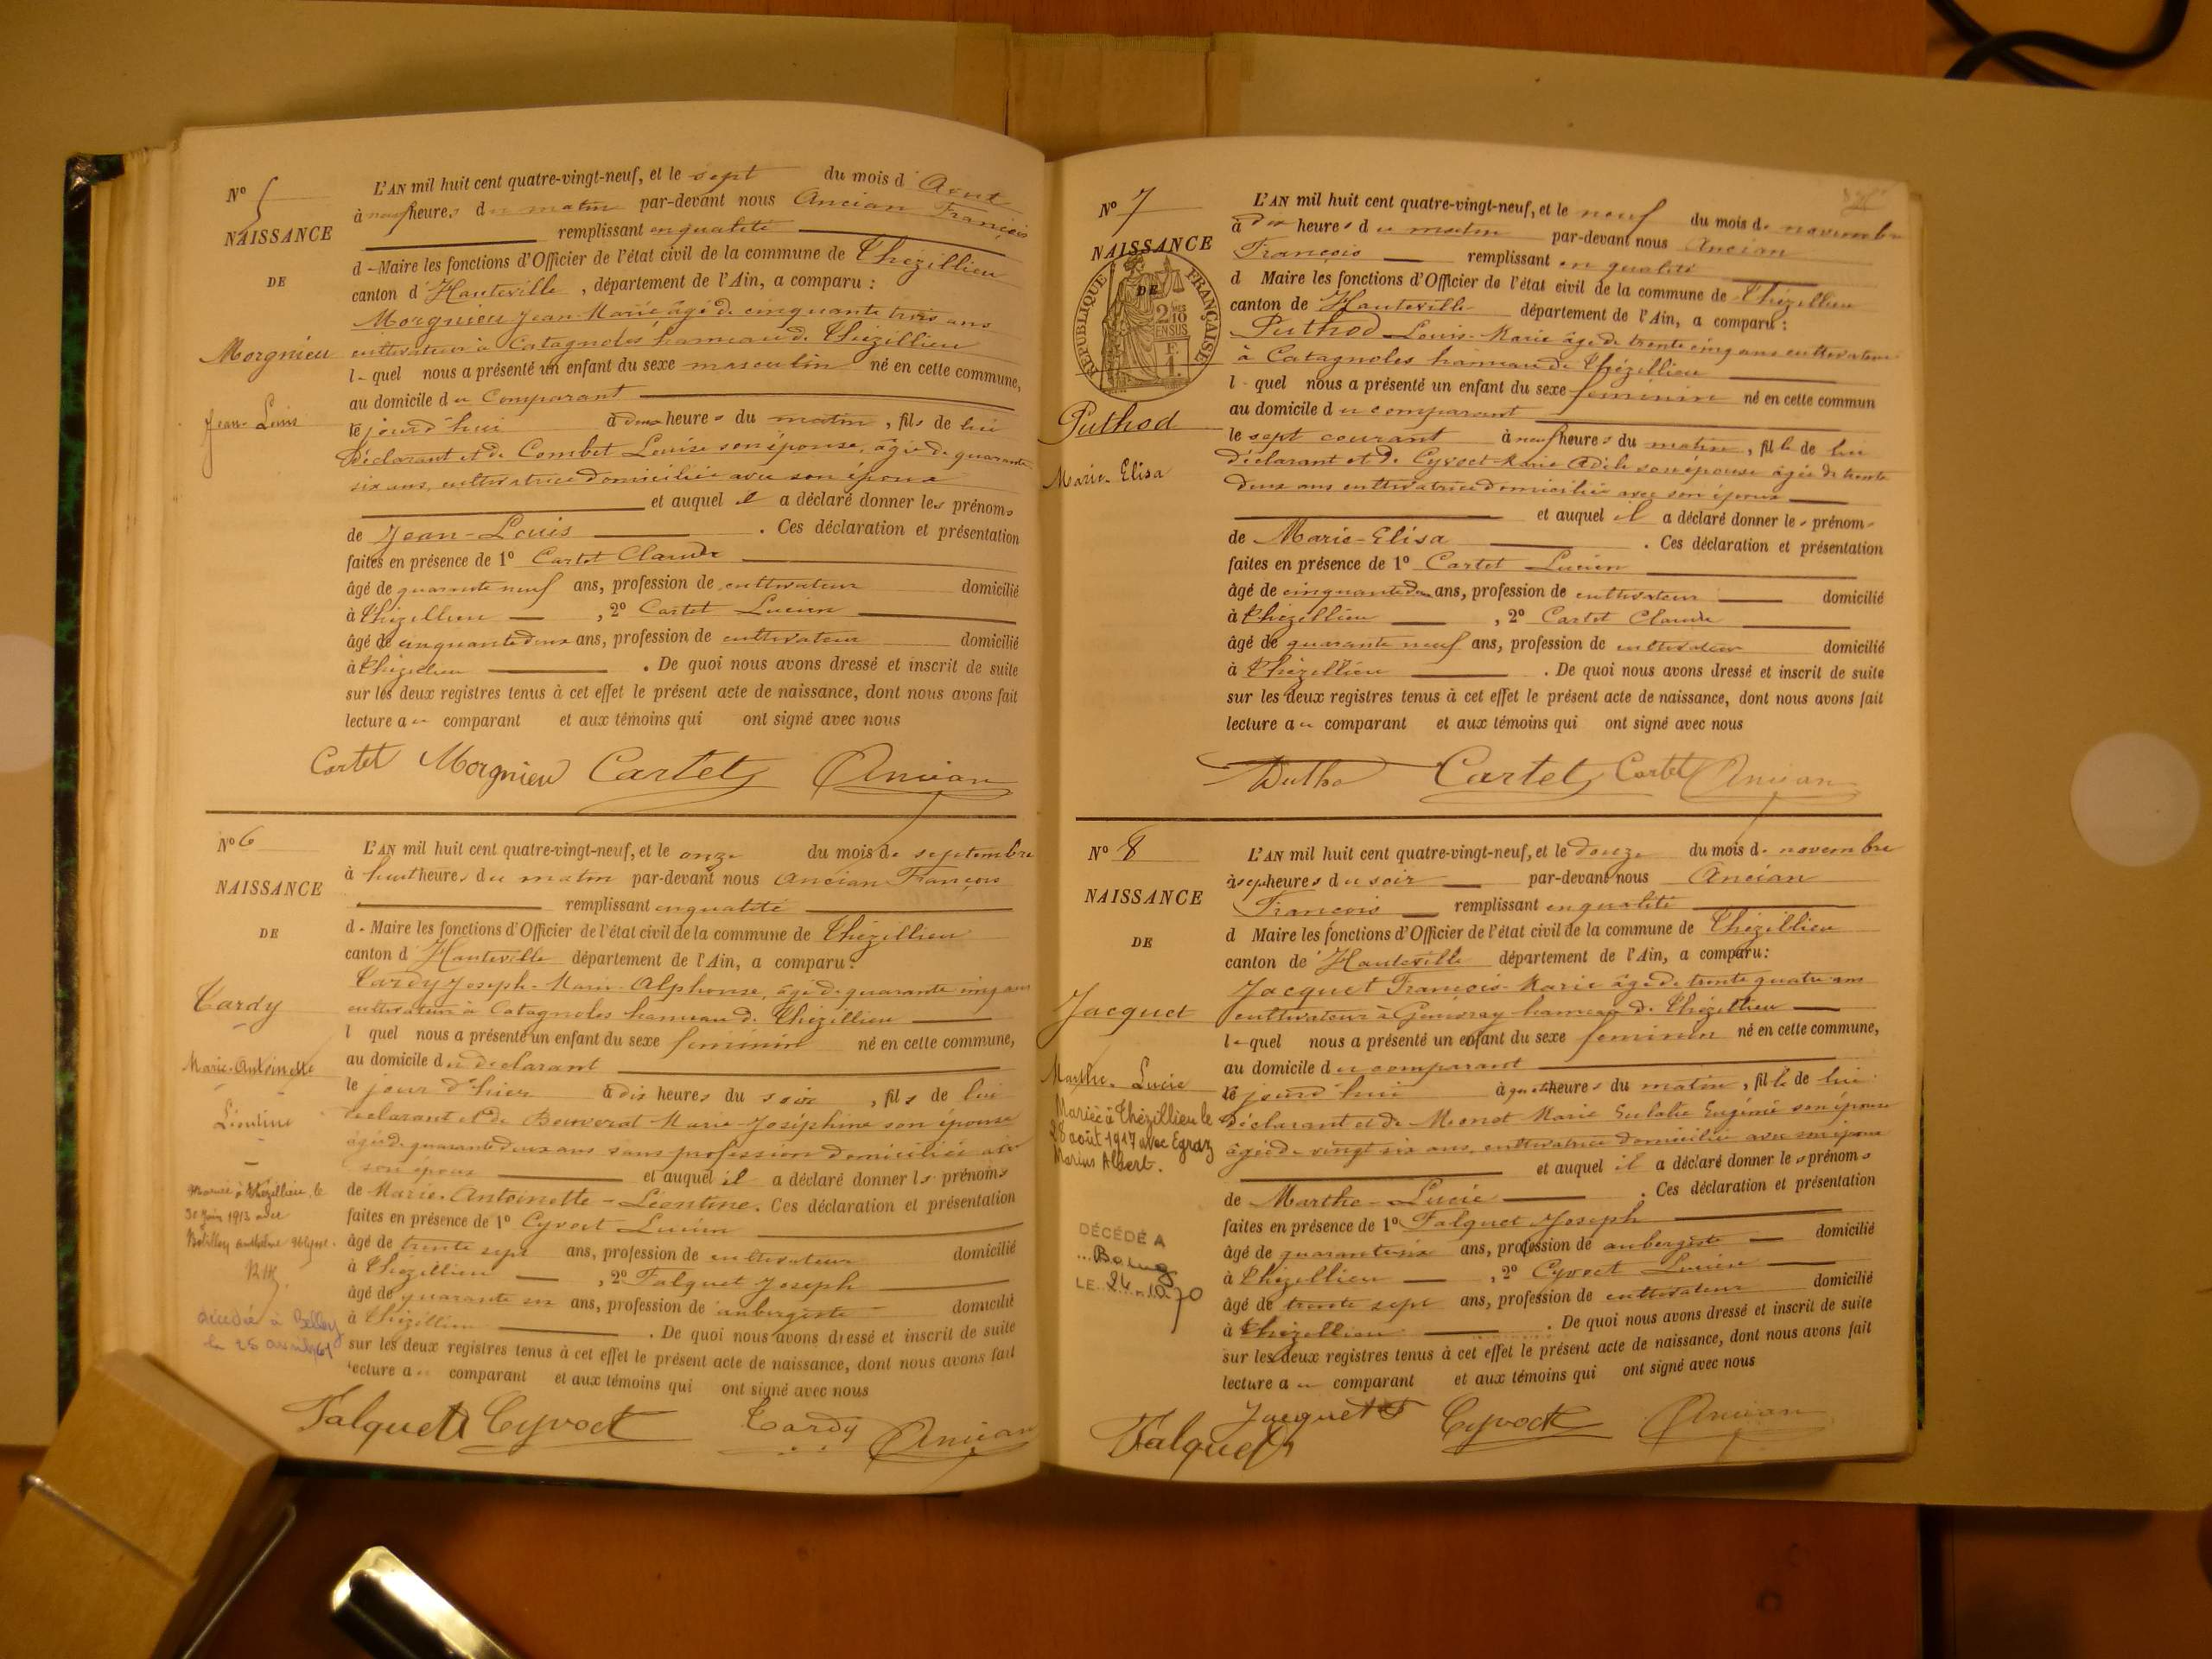 N° 5
NAISSANCE
DE
Morgnieu
Jean-Louis
L'AN mil huit cent quatre-vingt-neuf, et le sept du mois d'Aout
à neuf heures du matin par-devant nous Ancian François
remplissant en qualité
d Maire les fonctions d'Officier de l'état civil de la commune de Thézillieu
canton d'Hauteville, département de l'Ain, a comparu :
Morgnieu Jean-Marie âgé de cinquante trois ans
cultivateur à Catagnoles hameau de Thézillieu
lequel nous a présenté un enfant du sexe masculin né en cette commune,
au domicile du Comparant
le jourd'hui à deux heures du matin, fils de lui
Déclarant et de Combet Louise son épouse, âgée de quarante
six ans, cultivatrice domiciliée avec son époux
et auquel il a déclaré donner les prénoms
de Jean-Louis. Ces déclaration et présentation
faites en présence de 1° Cartet Claude
âgé de quarante neuf ans, profession de cultivateur domicilié
à Thézillieu, 2° Cartet Lucien
âgé de cinquante deux ans, profession de cultivateur domicilié
à Thézillieu. De quoi nous avons dressé et inscrit de suite
sur les deux registres tenus à cet effet le présent acte de naissance, dont nous avons fait
lecture au comparant et aux témoins qui ont signé avec nous
Cartet Morgnieu Cartet Ancian
N° 6
NAISSANCE
DE
Tardy
Marie-Antoinette
Léontine
Mariée à Thézillieu le
30 juin 1913 avec
décédée à Belley
L'AN mil huit cent quatre-vingt-neuf, et le onze du mois de septembre
à huit heures du matin par-devant nous Ancian François
remplissant en qualité
d. Maire les fonctions d'Officier de l'état civil de la commune de Thézillieu
canton d'Hauteville département de l'Ain, a comparu :
Tardy Joseph-Marie-Alphonse, âgé de quarante cinq ans
cultivateur à Catagnoles hameau de Thézillieu
l quel nous a présenté un enfant du sexe féminin né en cette commune,
au domicile du déclarant
le jour d'hier à dix heures du soir, fils de lui
déclarant et de Bouverat Marie-Joséphine son épouse
âgée de quarante deux ans sans profession domiciliée avec
son époux et auquel il a déclaré donner ls prénoms
de Marie-Antoinette-Léontine. Ces déclaration et présentation
faites en présence de 1° Cyvoct Lucien
âgé de trente sept ans, profession de cultivateur domicilié
à Thézillieu, 2° Falquet Joseph
âgé de quarante six ans, profession de aubergiste domicilié
à Thézillieu. De quoi nous avons dressé et inscrit de suite
sur les deux registres tenus à cet effet le présent acte de naissance, dont nous avons fait
lecture au comparant et aux témoins qui ont signé avec nous
Falquet Cyvoct Tardy Ancian
N° 7
NAISSANCE
DE
RÉPUBLIQUE FRANÇAISE
2/10
EN SUS
Puthod
Marie-Elisa
L'AN mil huit cent quatre-vingt-neuf, et le neuf du mois de novembre
à dix heures du matin par-devant nous Ancian
François remplissant en qualité
d Maire les fonctions d'Officier de l'état civil de la commune de Thézillieu
canton de Hauteville département de l'Ain, a comparu :
Puthod Louis-Marie âgé de trente cinq ans cultivateur
à Catagnoles hameau de Thézillieu
l quel nous a présenté un enfant du sexe féminin né en cette commun
au domicile du comparant
le sept courant à neuf heures du matin, fille de lui
déclarant et de Cyvoct Marie Adèle son épouse âgée de trente
deux ans cultivatrice domiciliée avec son époux
et auquel il a déclaré donner les prénom
de Marie-Elisa. Ces déclaration et présentation
faites en présence de 1° Cartet Lucien
âgé de cinquante deux ans, profession de cultivateur domicilié
à Thézillieu, 2° Cartet Claude
âgé de quarante neuf ans, profession de cultivateur domicilié
à Thézillieu. De quoi nous avons dressé et inscrit de suite
sur les deux registres tenus à cet effet le présent acte de naissance, dont nous avons fait
lecture au comparant et aux témoins qui ont signé avec nous
Putho Cartet Cartet Ancian
N° 8
NAISSANCE
DE
Jacquet
Marthe-Lucie
Mariée à Thézillieu le
28 août 1917 avec Egraz
Marius Albert.
DÉCÉDÉ A
Bourg
LE 24.10.70
L'AN mil huit cent quatre-vingt-neuf, et le douze du mois de novembre
à sept heures du soir par-devant nous Ancian
François remplissant en qualité
d Maire les fonctions d'Officier de l'état civil de la commune de Thézillieu
canton de Hauteville département de l'Ain, a comparu :
Jacquet François-Marie âgé de trente quatre ans
cultivateur à Genevray hameau de Thézillieu
lequel nous a présenté un enfant du sexe féminin né en cette commune,
au domicile du comparant
le jourd'hui à quatre heures du matin, fille de lui
déclarant et de Monet Marie Eulalie Eugénie son épouse
âgée de vingt six ans, cultivatrice domiciliée avec son époux
et auquel il a déclaré donner les prénoms
de Marthe-Lucie. Ces déclaration et présentation
faites en présence de 1° Falquet Joseph
âgé de quarante six ans, profession de aubergiste domicilié
à Thézillieu, 2° Cyvoct Lucien
âgé de trente sept ans, profession de cultivateur domicilié
à Thézillieu. De quoi nous avons dressé et inscrit de suite
sur les deux registres tenus à cet effet le présent acte de naissance, dont nous avons fait
lecture au comparant et aux témoins qui ont signé avec nous
Falquet Jacquet Cyvoct Ancian